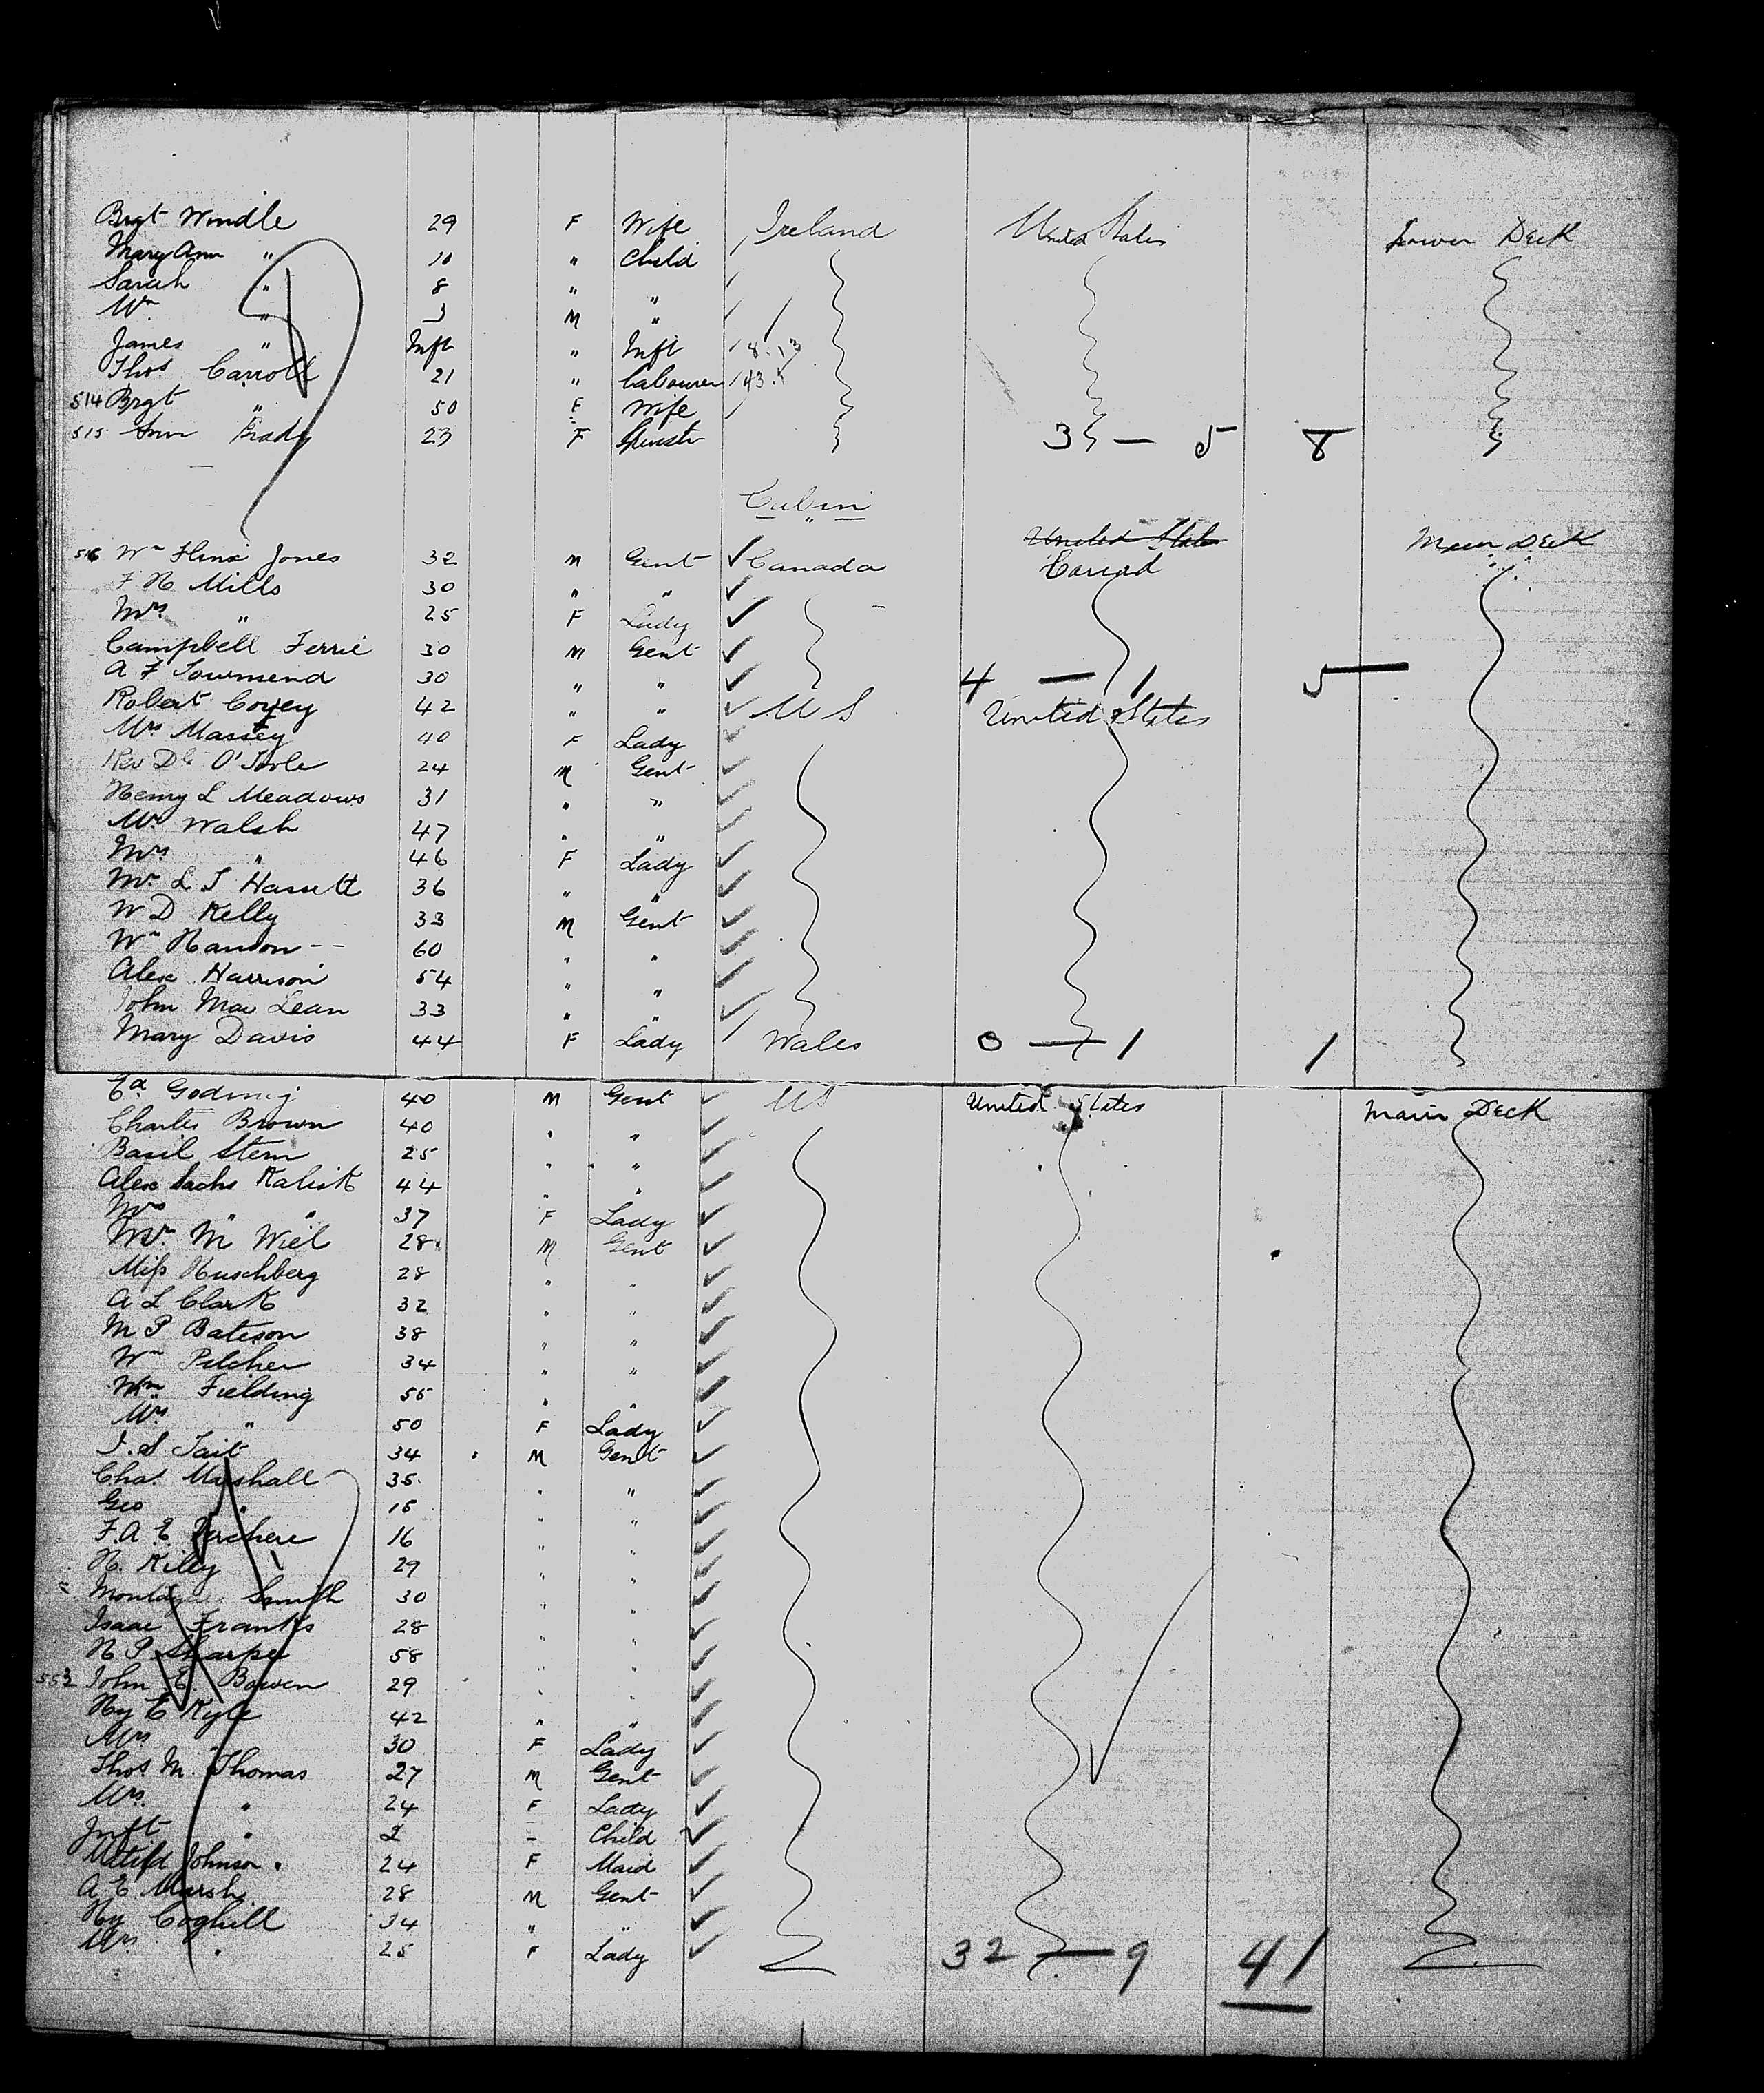 Brgt Windle 29 F Wife Ireland United States Lower Deck
Mary Ann " 10 " Child
Sarah " 8 " "
Wm " 3 M "
James " Inft " Inft
Thos Carroll 21 " Labourer
514 Brgt " 50 F Wife
515 Ann Brady 23 F Spinstr 3 — 5 8
Cabin
516 Wm Jones 32 M Gent Canada United States Main Deck
Canad
F H Mills 30 " "
Mrs " 25 F Lady
Campbell Ferrie 30 M Gent
A F Townsend 30 " " 4 — 1 5
Robert Covey 42 " " U S United States
Mrs Massey 40 F Lady
Rev D O'Toole 24 M Gent
Henry L Meadows 31 " "
Mr Walsh 47 " "
Mrs " 46 F Lady
L T 36 " "
W D Kelly 33 M Gent
Wm Hanson 60 " "
Alex Harrison 54 " "
John Mac Lean 33 " "
Mary Davis 44 F Lady Wales 0 — 1 1
Ed 40 M Gent U S United States Main Deck
Charles Brown 40 " "
Basil Stern 25 " "
Alex Sachs Kalisk 44 " "
Mrs " " 37 F Lady
Mr M Wiel 28 M Gent
Miss Huschberg 28 " "
A L Clark 32 " "
M P Bateson 38 " "
Wm Pilcher 34 " "
Wm Fielding 55 " "
Mrs " 50 F Lady
J. S Tait 34 M Gent
Chas. Marshall 35 " "
Geo " 15 " "
F. A. E. 16 " "
H. Kiley 29 " "
Smith 30 " "
Isaac Franks 28 " "
H P Sharpe 58 " "
553 John E. Bowen 29 " "
Hy E Kyle 42 " "
Mrs 30 F Lady
Thos M. Thomas 27 M Gent
Mrs. " 24 F Lady
Inft " 2 – Child
Johnson 24 F Maid
A E Marsh 28 M Gent
Hy Coghill 34 " "
Mrs " 25 F Lady 32 — 9 41